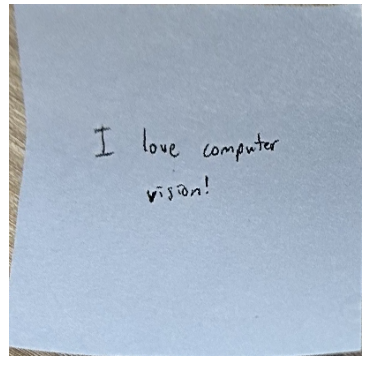 I love computer
vision!